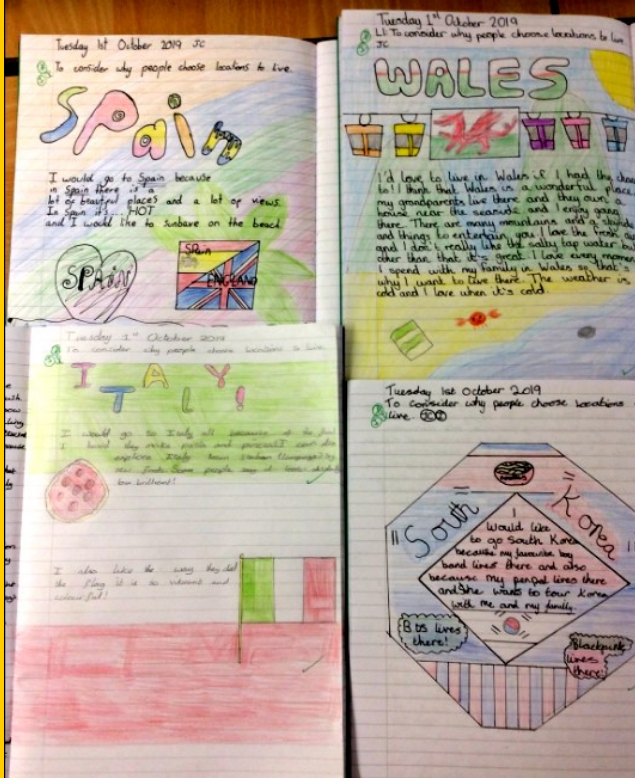 Tuesday 1st October 2019 JC
To consider why people choose locations to live.
SPain
I would go to Spain because
in Spain there is a
lot of beautiful places and a lot of views.
In Spain it's.... HOT
and I would like to sunbave on the beach
SPAIN
SPain
ENGLAND
Tuesday 1st October 2019
LI: To consider why people choose locations to live
JC
WALES
I'd love to live in Wales if I had the
to! I think that Wales is a wonderful place
my grandparents live there and they own a
house near the seaside and I enjoy going
there. There are many mountains and
and things to entertain you. I love the fresh
and I don't really like the salty tap water but
other than that it's great. I love every momen
I spend with my family in Wales so that's
why I want to live there. The weather is
cold and I love when it's cold.
Tuesday 1st October 2019
To consider why people choose locations to live.
ITALY!
I would go to Italy all because of the food
I heard they make pasta and
explore Italy
food. Some people say it
I also like the way they did
the flag it is so vibrant and
colourful!
Tuesday 1st October 2019
To consider why people choose locations
live.
South Korea
I
Would like
to go South Korea
because my favourite boy
band lives there and also
because my penpal lives there
and she wants to tour Korea
with me and my family.
BTS lives
there!
Blackpink
lives
there!